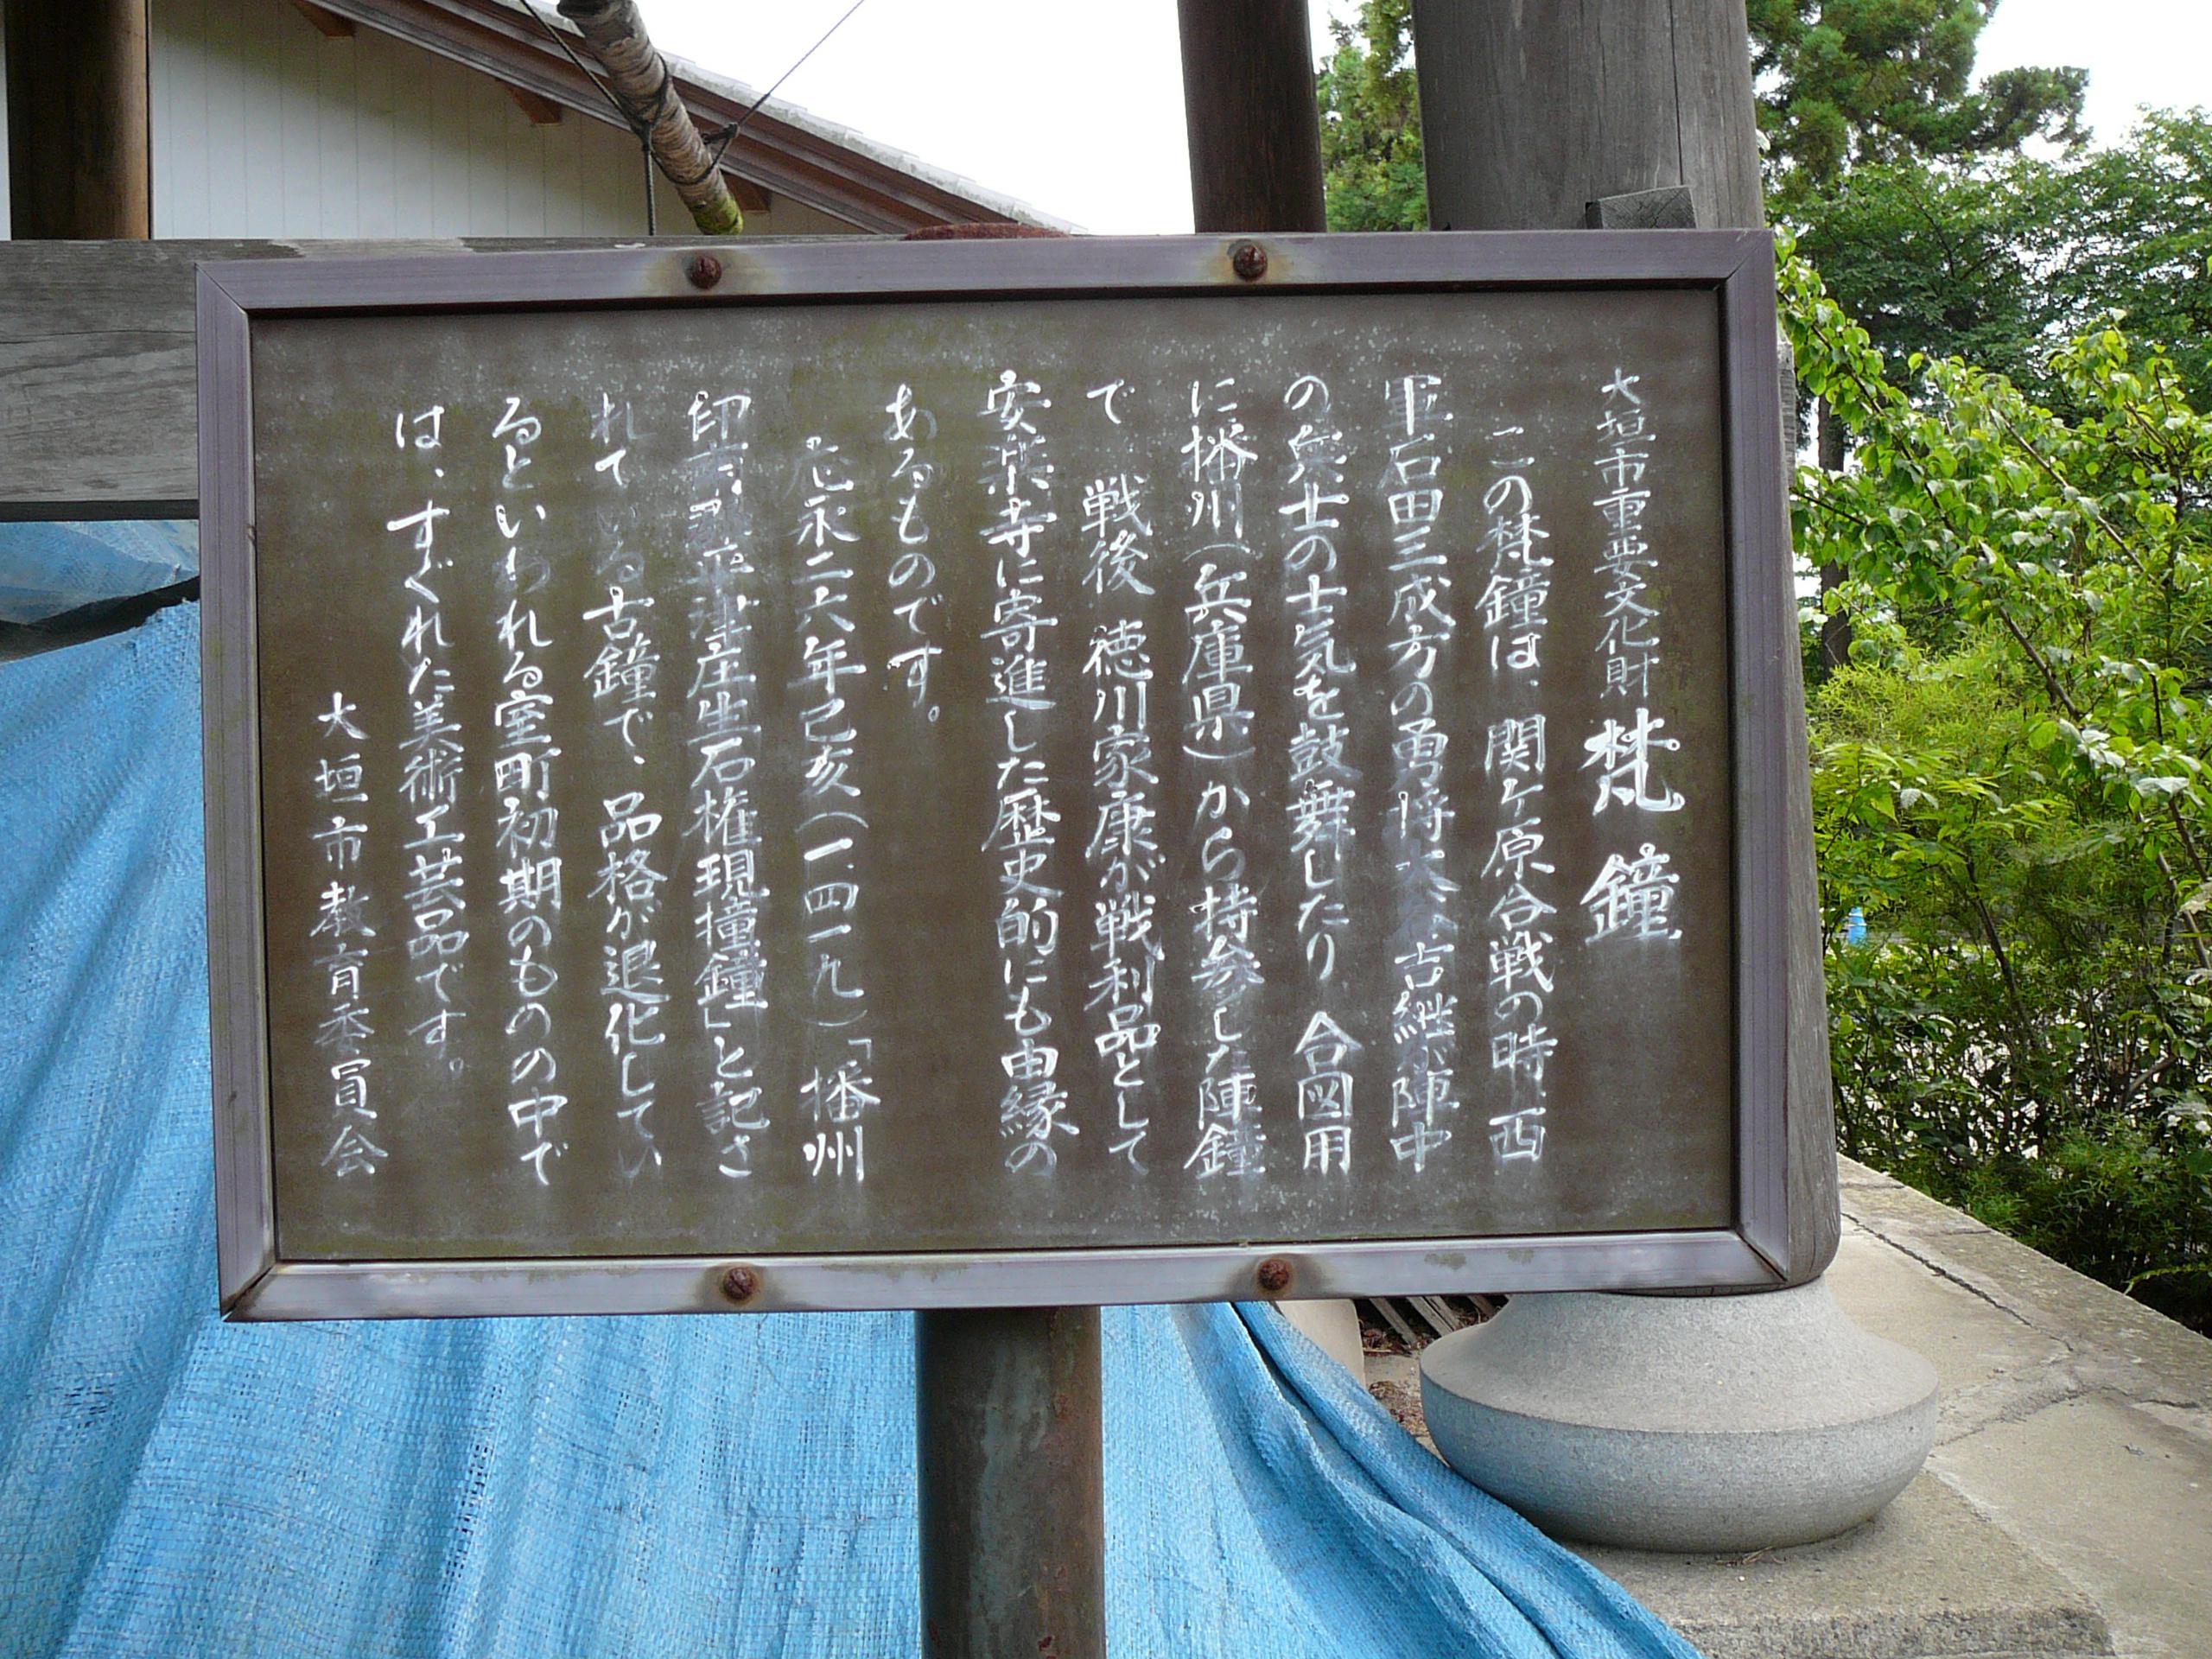 大垣市重要文化財 梵鐘
この梵鐘は、関ケ原合戦の時、西
軍石田三成方の勇将大谷吉継が陣中
の兵士の士気を鼓舞したり 合図用
に播州(兵庫県)から持参した陣鐘
で 戦後 徳川家康が戦利品として
安楽寺に寄進した歴史的にも由緣の
あるものです。
応永二六年己亥(一四一九)「播州
印南 平津庄生石権現撞鐘」と記さ
れている古鐘で、品格が退化してい
るといわれる室町初期のものの中で
は、すぐれた美術工芸品です。
大垣市教育委員会